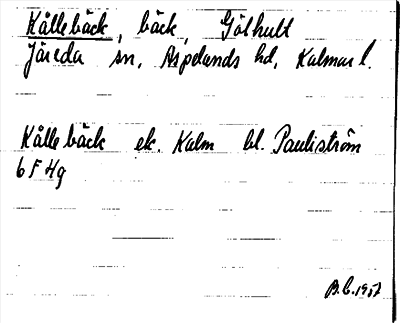 Kållebäck, bäck, Gölhult
Järeda sn, Aspelands hd, Kalmar l.
Källebäck ek. Kalm bl. Pauliström
6 F 4g
B.C. 1957